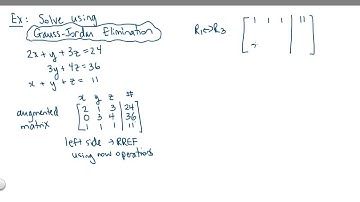 Ex: Solve using
Gauss-Jordan Elimination
2x + y + 3z = 24
3y + 4z = 36
x + y + z = 11
x y z #
2 1 3 24
augmented matrix
0 3 4 36
1 1 1 11
left side → RREF
using row operations
R1↔R3
1 1 1 11